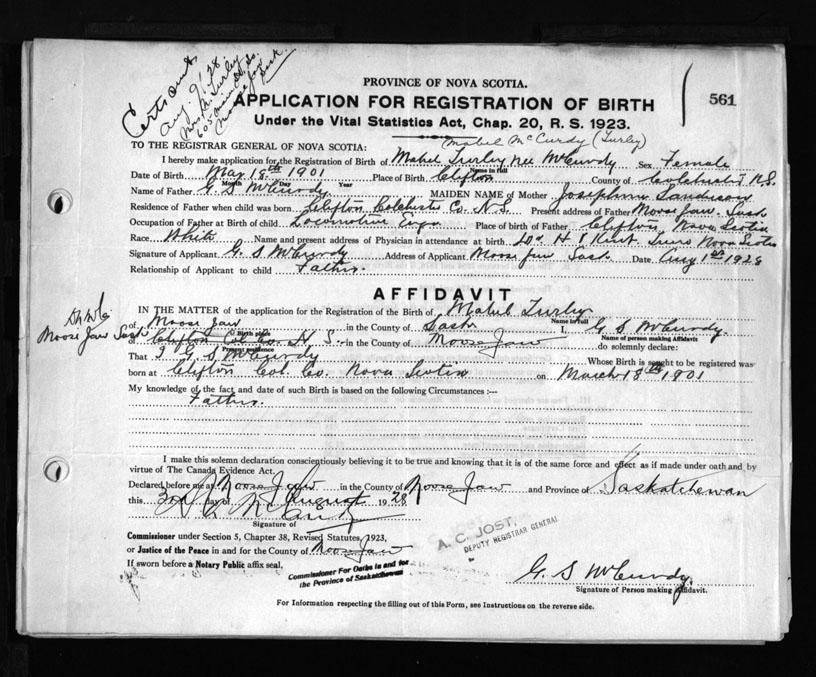 Certs out
Aug. 9/28.
Mrs. Turley
605
Moose Jaw
Sask.
PROVINCE OF NOVA SCOTIA.
APPLICATION FOR REGISTRATION OF BIRTH
561
Under the Vital Statistics Act, Chap. 20, R. S. 1923.
Mabel McCurdy (Turley)
TO THE REGISTRAR GENERAL OF NOVA SCOTIA:
I hereby make application for the Registration of Birth of Mabel Turley nee McCurdy Sex Female
Name in full
Date of Birth Mar 18th 1901 Place of Birth Clifton County of Colchester N.S.
Month Day Year
Name of Father G. S McCurdy MAIDEN NAME of Mother Josephine
Residence of Father when child was born Clifton Colchester Co. N.S. Present address of Father Moose Jaw. Sask
Occupation of Father at Birth of child Locomotive Place of birth of Father Clifton Nova Scotia
Race White Name and present address of Physician in attendance at birth Dr H Kent Truro Nova Scotia
Signature of Applicant G. S McCurdy Address of Applicant Moose Jaw Sask. Date Aug 1st 1928
Relationship of Applicant to child Father.
AFFIDAVIT
IN THE MATTER of the application for the Registration of the Birth of Mabel Turley
Name in Full
Moose Jaw Sask
of Moose Jaw in the County of Sask I, G S McCurdy
Birth place
Name of Person making Affidavit
of Clifton Col. Co. N. S. in the County of Moose Jaw do solemnly declare:
Residence
That I G. S McCurdy Whose Birth is sought to be registered was
born at Clifton Col. Co. Nova Scotia on March 18th 1901
My knowledge of the fact and date of such Birth is based on the following Circumstances :—
Father.
I make this solemn declaration conscientiously believing it to be true and knowing that it is of the same force and effect as if made under oath and by
virtue of The Canada Evidence Act.
Declared before me at Moose Jaw in the County of Moose Jaw and Province of Saskatchewan
this 3rd day of August 1928
Signature of
Commissioner under Section 5, Chapter 38, Revised Statutes, 1923,
or Justice of the Peace in and for the County of Moose Jaw
If sworn before a Notary Public affix seal.
Commissioner For Oaths in and for
the Province of Saskatchewan
A. C. JOST,
DEPUTY REGISTRAR GENERAL
G. S McCurdy.
Signature of Person making Affidavit.
For Information respecting the filling out of this Form, see Instructions on the reverse side.